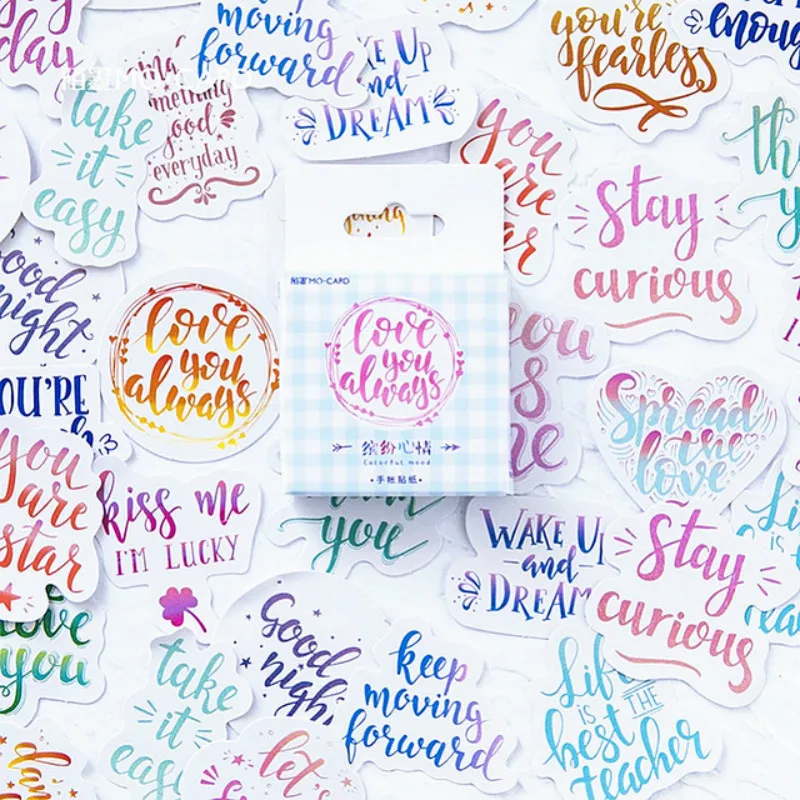 day
moving
forward
WAKE UP
and
DREAM
you're
fearless
enough
take
it
easy
something
good
everyday
you
are
star
stay
curious
good
night.
陌墨MO·CARD
love
you
always
love
you
always
缤纷心情
Colorful mood
·手帐贴纸·
you
Spread
the
love
YOU'RE
you
are
star
kiss me
I'M LUCKY
you
WAKE UP
and
DREAM
stay
curious
love
you
take
it
easy
Good
night
keep
moving
forward
Life
IS THE
best
teacher
let's